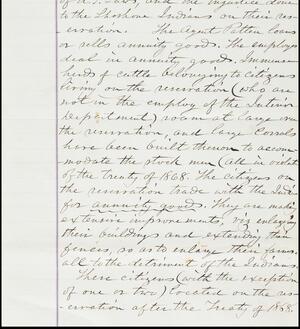 of U.S. Laws, and the injustice done
to the Shoshone Indians on their res-
ervation. The agent Patten loans
or sells annuity goods. The employes
deal in annuity goods. Immense
herds of cattle belonging to citizens
living on the reservation (who are
not in the employ of the Interior
Department) roam at large over
the reservation, and large Corrals
have been built thereon to accom-
modate the stock men (all in violat
of the treaty of 1868. The citizens on
the reservation trade with the Indi
for annuity goods. They are maki
extensive improvements, viz enlargi
their buildings and extending thei
fences, so as to enlarge their farms,
all to the detriment of the Indians.
These citizens (with the exception
of one or two) located on the res-
ervation after the Treaty of 1868.